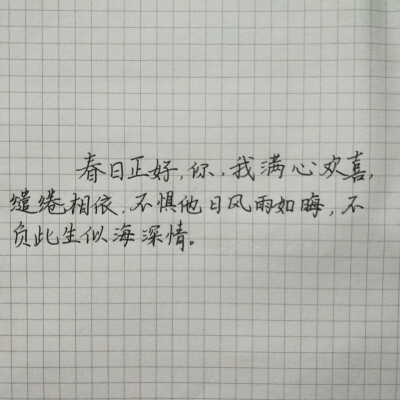 春日正好,你、我满心欢喜,
缱绻相依,不惧他日风雨如晦,不
负此生似海深情。